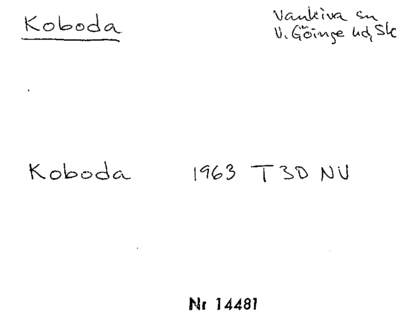 Koboda
Vankiva sn
V. Göinge hd, Sk
Koboda 1963 T 3D NV
Nr 14481